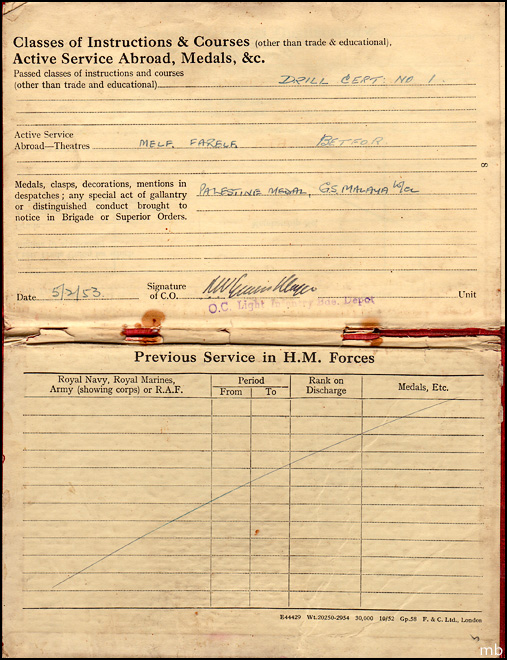 Classes of Instructions & Courses (other than trade & educational),
Active Service Abroad, Medals, &c.
Passed classes of instructions and courses
(other than trade and educational) DRILL CERT: NO 1.
Active Service
Abroad—Theatres MELF. FARELF. BETFOR
8
Medals, clasps, decorations, mentions in
despatches; any special act of gallantry PALESTINE MEDAL, G.S. MALAYA
or distinguished conduct brought to
notice in Brigade or Superior Orders.
Date 5/2/53. Signature
of C.O. Unit
O.C. Light Infantry Bde. Depot
Previous Service in H.M. Forces
Royal Navy, Royal Marines,
Army (showing corps) or R.A.F. Period Rank on
Discharge Medals, Etc.
From To
E44429 Wt.20250-2954 30,000 10/52 Gp.58 F. & C. Ltd., London
mb